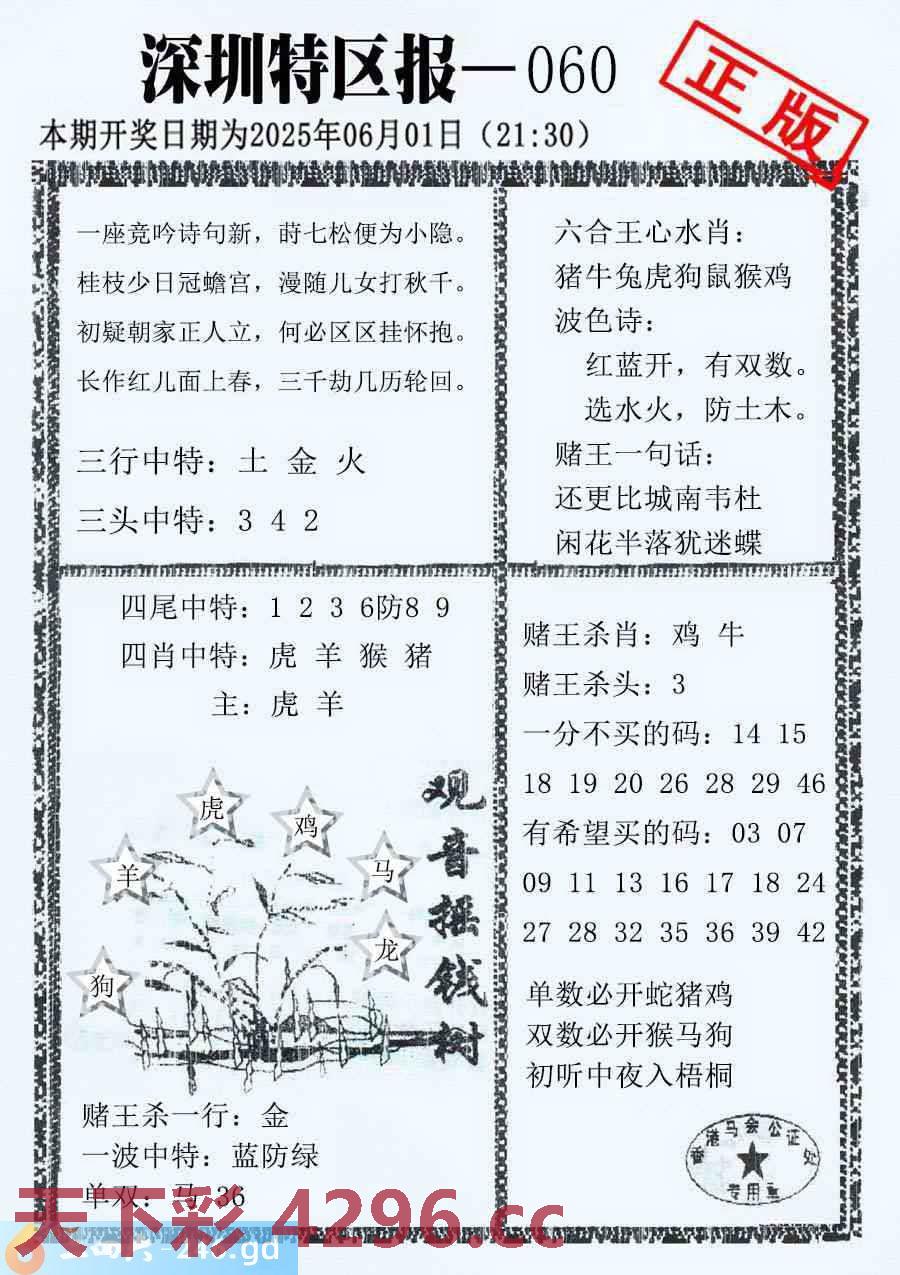 深圳特区报—060
正版
本期开奖日期为2025年06月01日（21:30）
一座竞吟诗句新，莳七松便为小隐。
桂枝少日冠蟾宫，漫随儿女打秋千。
初疑朝家正人立，何必区区挂怀抱。
长作红儿面上春，三千劫几历轮回。
三行中特：土 金 火
三头中特：3 4 2
六合王心水肖：
猪牛兔虎狗鼠猴鸡
波色诗：
红蓝开，有双数。
选水火，防土木。
赌王一句话：
还更比城南韦杜
闲花半落犹迷蝶
四尾中特：1 2 3 6防8 9
四肖中特：虎 羊 猴 猪
主：虎 羊
虎
鸡
羊
马
龙
狗
观音摇钱树
赌王杀一行：金
一波中特：蓝防绿
单双：马 36
赌王杀肖：鸡 牛
赌王杀头：3
一分不买的码：14 15
18 19 20 26 28 29 46
有希望买的码：03 07
09 11 13 16 17 18 24
27 28 32 35 36 39 42
单数必开蛇猪鸡
双数必开猴马狗
初听中夜入梧桐
香港马会公证处
专用章
天下彩 4296.cc